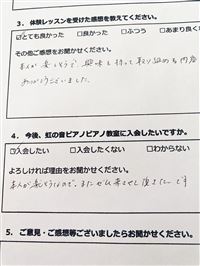 3．体験レッスンを受けた感想を教えてください。
☑とても良かった　□良かった　□ふつう　□あまり良く
その他ご感想をお聞かせください。
本人が楽しそうで、興味を持って取り組める内容
ありがとうございました。
4．今後、虹の音ピアノピアノ教室に入会したいですか。
☑入会したい　□入会したくない　□わからない
よろしければ理由をお聞かせください。
本人が楽しそうなので、またぜひ来させて頂きたいです
5．ご意見・ご感想等ございましたらお聞かせください。